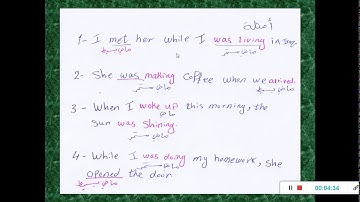 أمثلة
1- I met her while I was living in Iraq.
ماضي بسيط ماضي مستمر
2- She was making coffee when we arrived.
ماضي مستمر ماضي بسيط
3- When I woke up this morning, the
ماضي
sun was shining.
ماضي مستمر
4- While I was doing my homework, she
ماضي مستمر
opened the door
ماضي بسيط
00:04:34